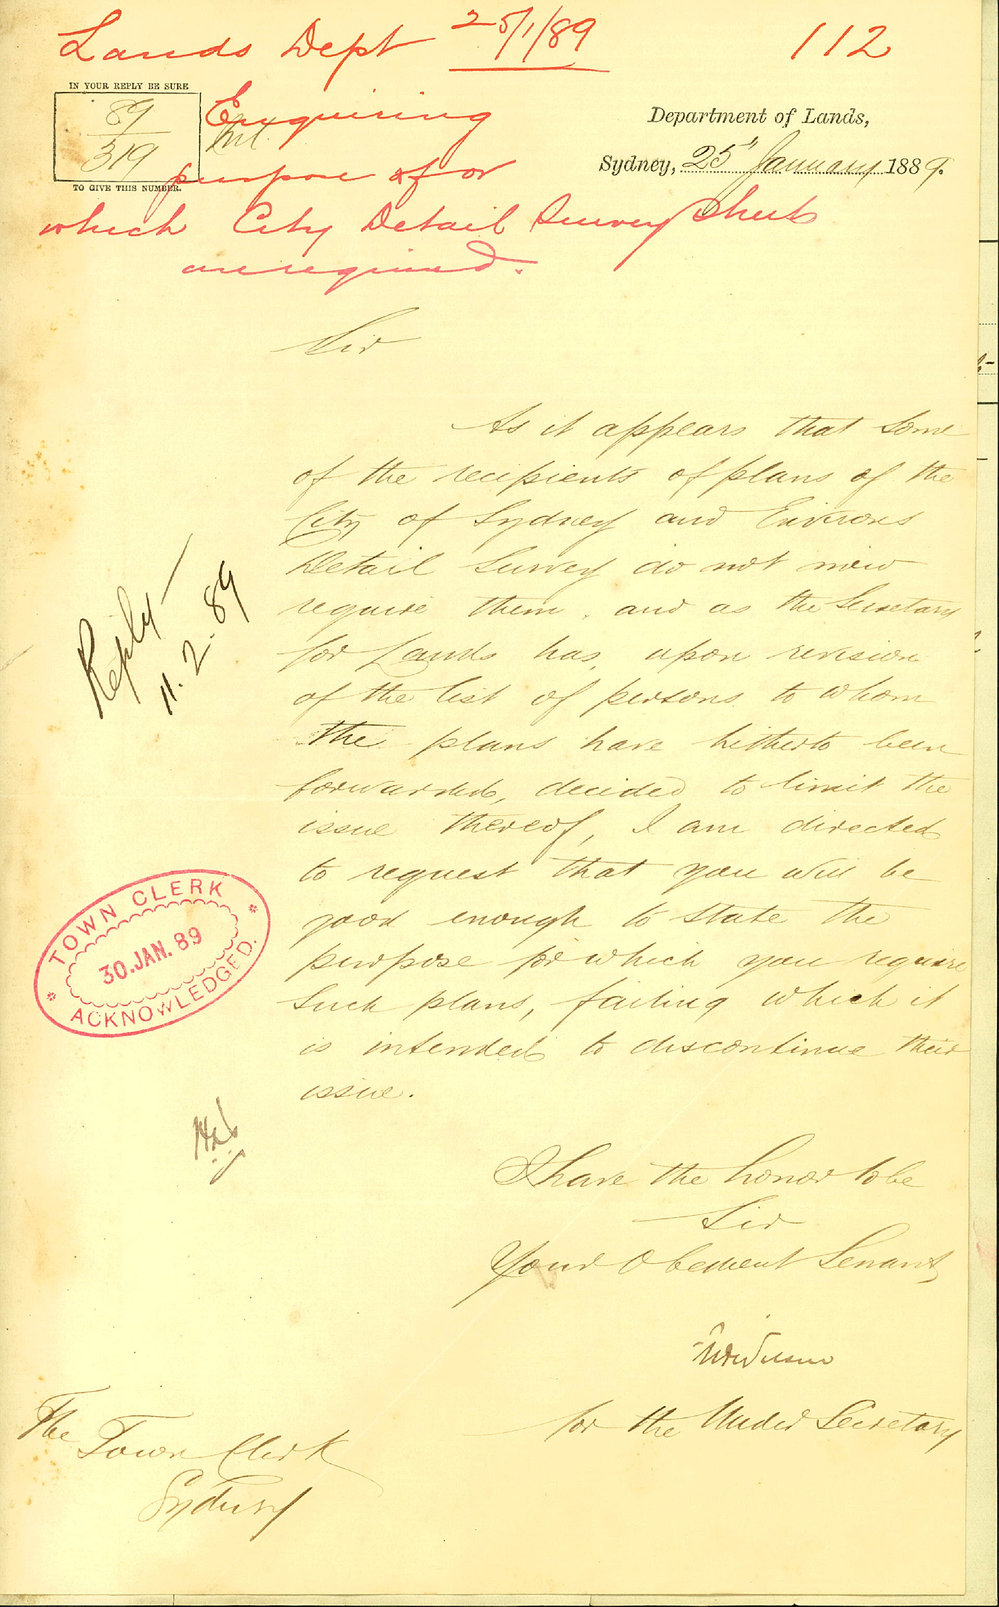 Lands Dept 25/1/89
112
IN YOUR REPLY BE SURE
89
319
TO GIVE THIS NUMBER.
Enquiring
purpose of or
which City Detail Survey Sheets
are required.
Department of Lands,
Sydney, 25 January 1889.
Sir
As it appears that some
of the recipients of plans of the
City of Sydney and Environs
Detail Survey do not now
require them, and as the Secretary
for Lands has, upon revision
of the list of persons to whom
the plans have hitherto been
forwarded, decided to limit the
issue thereof, I am directed
to request that you will be
good enough to state the
purpose for which you require
such plans, failing which it
is intended to discontinue their
issue.
Reply
11.2.89
TOWN CLERK
30.JAN.89
ACKNOWLEDGED.
I have the honor to be
Sir
Your Obedient Servant,
for the Under Secretary
The Town Clerk
Sydney